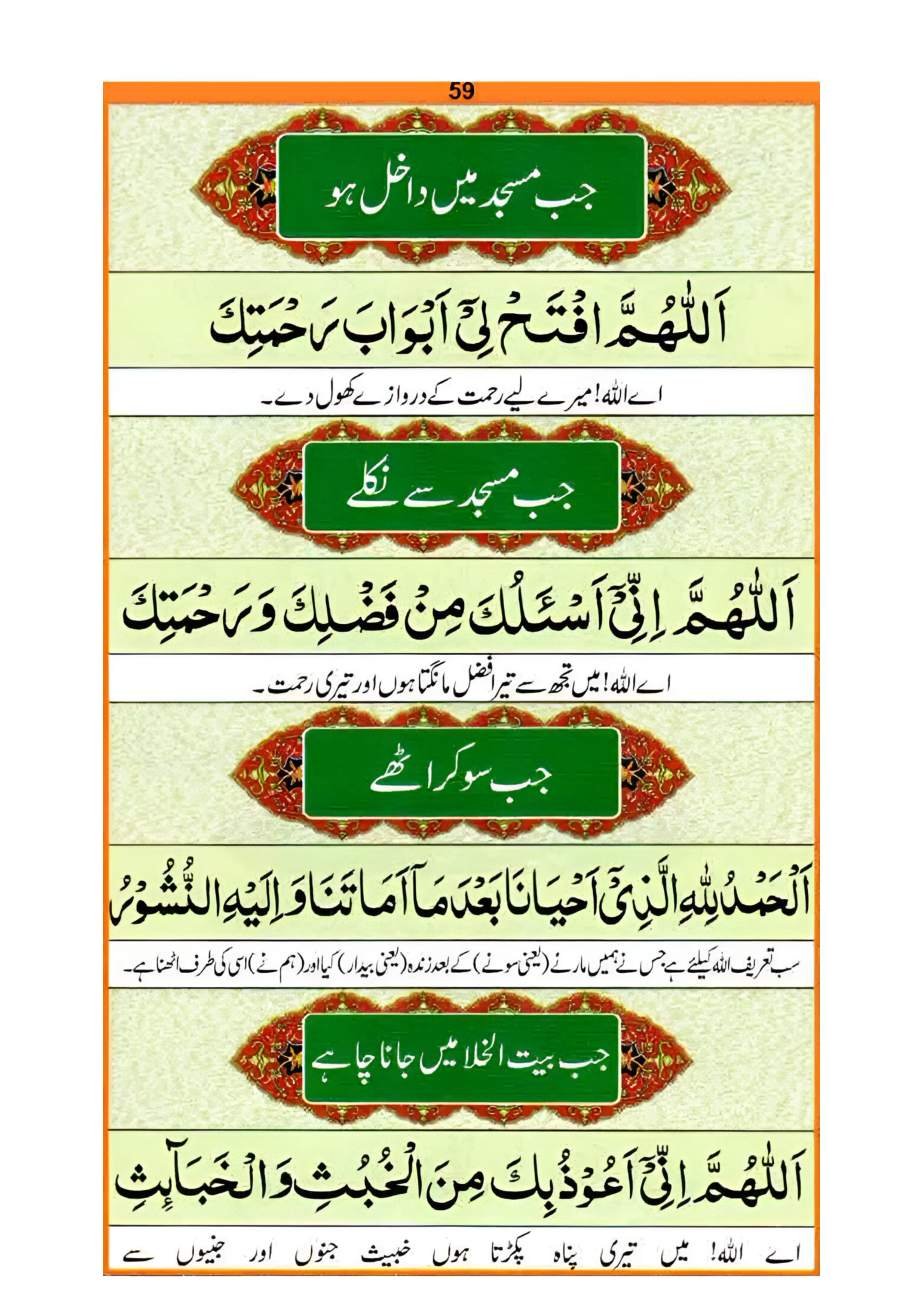 59
جب مسجد میں داخل ہو
اَللّٰهُمَّ افْتَحْ لِیْٓ اَبْوَابَ رَحْمَتِكَ
اے اللہ! میرے لیے رحمت کے دروازے کھول دے۔
جب مسجد سے نکلے
اَللّٰهُمَّ اِنِّیْٓ اَسْئَلُكَ مِنْ فَضْلِكَ وَرَحْمَتِكَ
اے اللہ! میں تجھ سے تیرا فضل مانگتا ہوں اور تیری رحمت۔
جب سو کر اٹھے
اَلْحَمْدُ لِلّٰهِ الَّذِیْٓ اَحْيَانَا بَعْدَ مَآ اَمَاتَنَا وَ اِلَيْهِ النُّشُوْرُ
سب تعریف اللہ کیلئے ہے جس نے ہمیں مارنے (یعنی سونے) کے بعد زندہ (یعنی بیدار) کیا اور (ہم نے) اسی کی طرف اٹھنا ہے۔
جب بیت الخلا میں جانا چاہے
اَللّٰهُمَّ اِنِّیْٓ اَعُوْذُ بِكَ مِنَ الْخُبُثِ وَالْخَبَآئِثِ
اے اللہ! میں تیری پناہ پکڑتا ہوں خبیث جنوں اور جنیوں سے